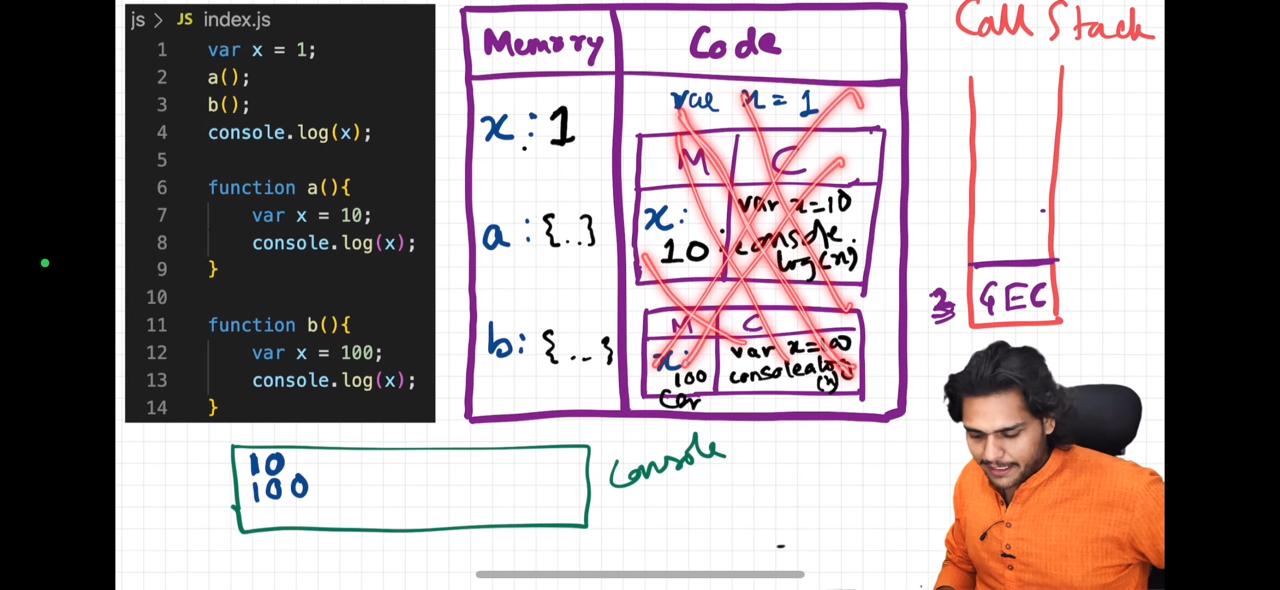 js > JS index.js
1 var x = 1;
2 a();
3 b();
4 console.log(x);
5
6 function a(){
7 var x = 10;
8 console.log(x);
9 }
10
11 function b(){
12 var x = 100;
13 console.log(x);
14 }
Memory
Code
x : 1
a : {..}
b: {...}
var x = 1
M C
x:
10
var x=10
console.
log(x)
M C
x:
100
var x=100
Con
Call Stack
GEC
10
100
Console